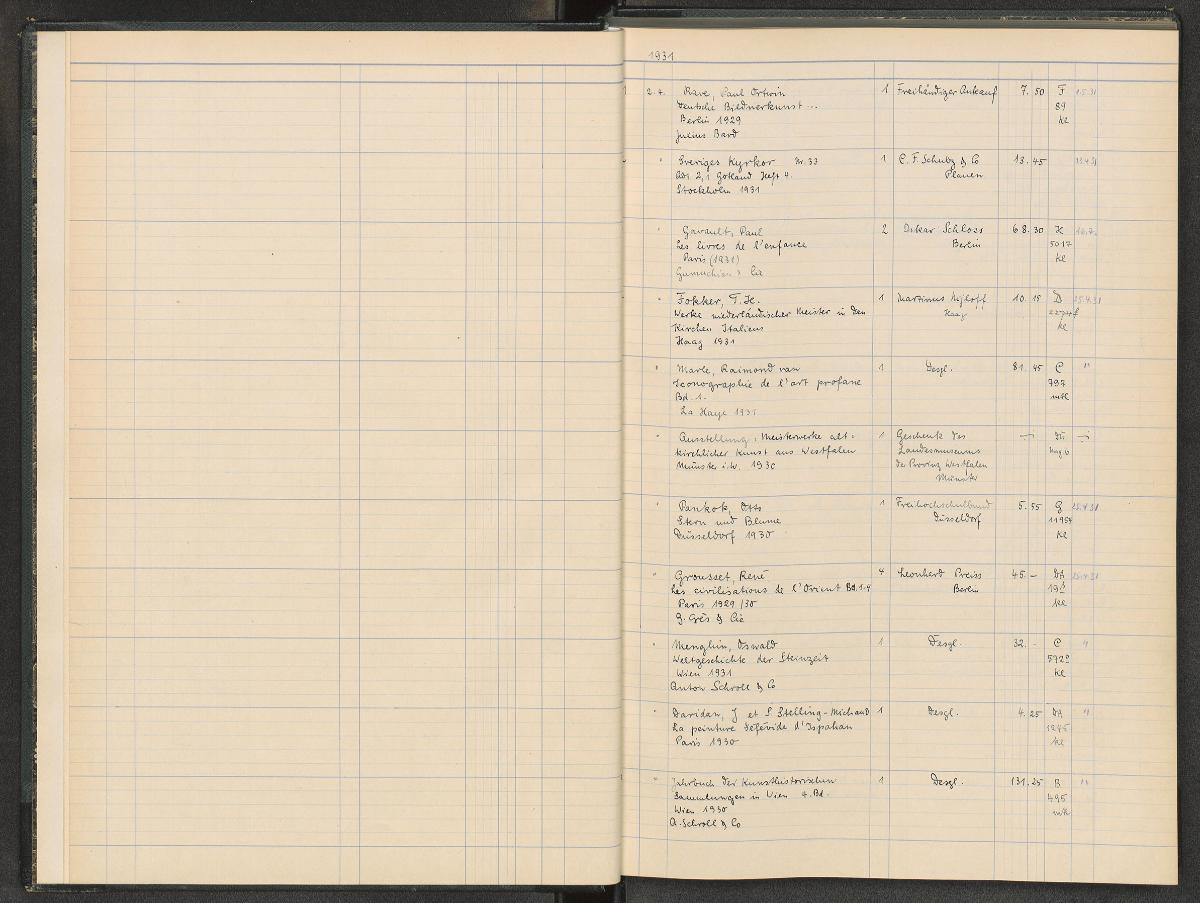 1931
2.4. Rave, Paul Ortwin 1 Freihändiger Ankauf 7.50 F 1.5.31
Deutsche Bildnerkunst ... 89
Berlin 1929 kl
Julius Bard
" Sveriges Kyrkor Nr. 33 1 C. F. Schulz & Co 13.45
Bd. 2,1 Gotland Heft 4. Plauen
Stockholm 1931
" Gavault, Paul 2 Oskar Schloss 68.30 K
Les livres de l'enfance Berlin 5017
Paris (1931) kl
Gumuchian & Cie
" Fokker, T. H. 1 Martinus Nijhoff 10.15 D 25.4.31
Werke niederländischer Meister in den Haag
Kirchen Italiens kl
Haag 1931
" Marle, Raimond van 1 Desgl. 81.45 C "
Iconographie de l'art profane 797
Bd. 1. mkl
La Haye 1931
" Ausstellung: Meisterwerke alt- 1 Geschenk des —
kirchlicher Kunst aus Westfalen Landesmuseums
Münster i.W. 1930 der Provinz Westfalen
Münster
" Pankok, Otto 1 Freihochschulbund 5.55 G 25.4.31
Stern und Blume Düsseldorf 11954
Düsseldorf 1930 kl
" Grousset, René 4 Leonhard Preiss 45.— DA 25.4.31
Les civilisations de l'Orient Bd. 1-4 Berlin
Paris 1929/30 kl
G. Grès & Cie
" Menghin, Oswald 1 Desgl. 32.- C "
Weltgeschichte der Steinzeit
Wien 1931 kl
Anton Schroll & Co
" Daridan, J et S Stelling-Michaud 1 Desgl. 4.25 DA "
La peinture séfévide d'Ispahan 1245
Paris 1930 kl
" Jahrbuch der Kunsthistorischen 1 Desgl. 131.25 B "
Sammlungen in Wien 4. Bd. 495
Wien 1930 mkl
A. Schroll & Co